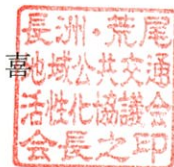 喜
長洲・荒尾
地域公共交通
活性化協議会
会長之印